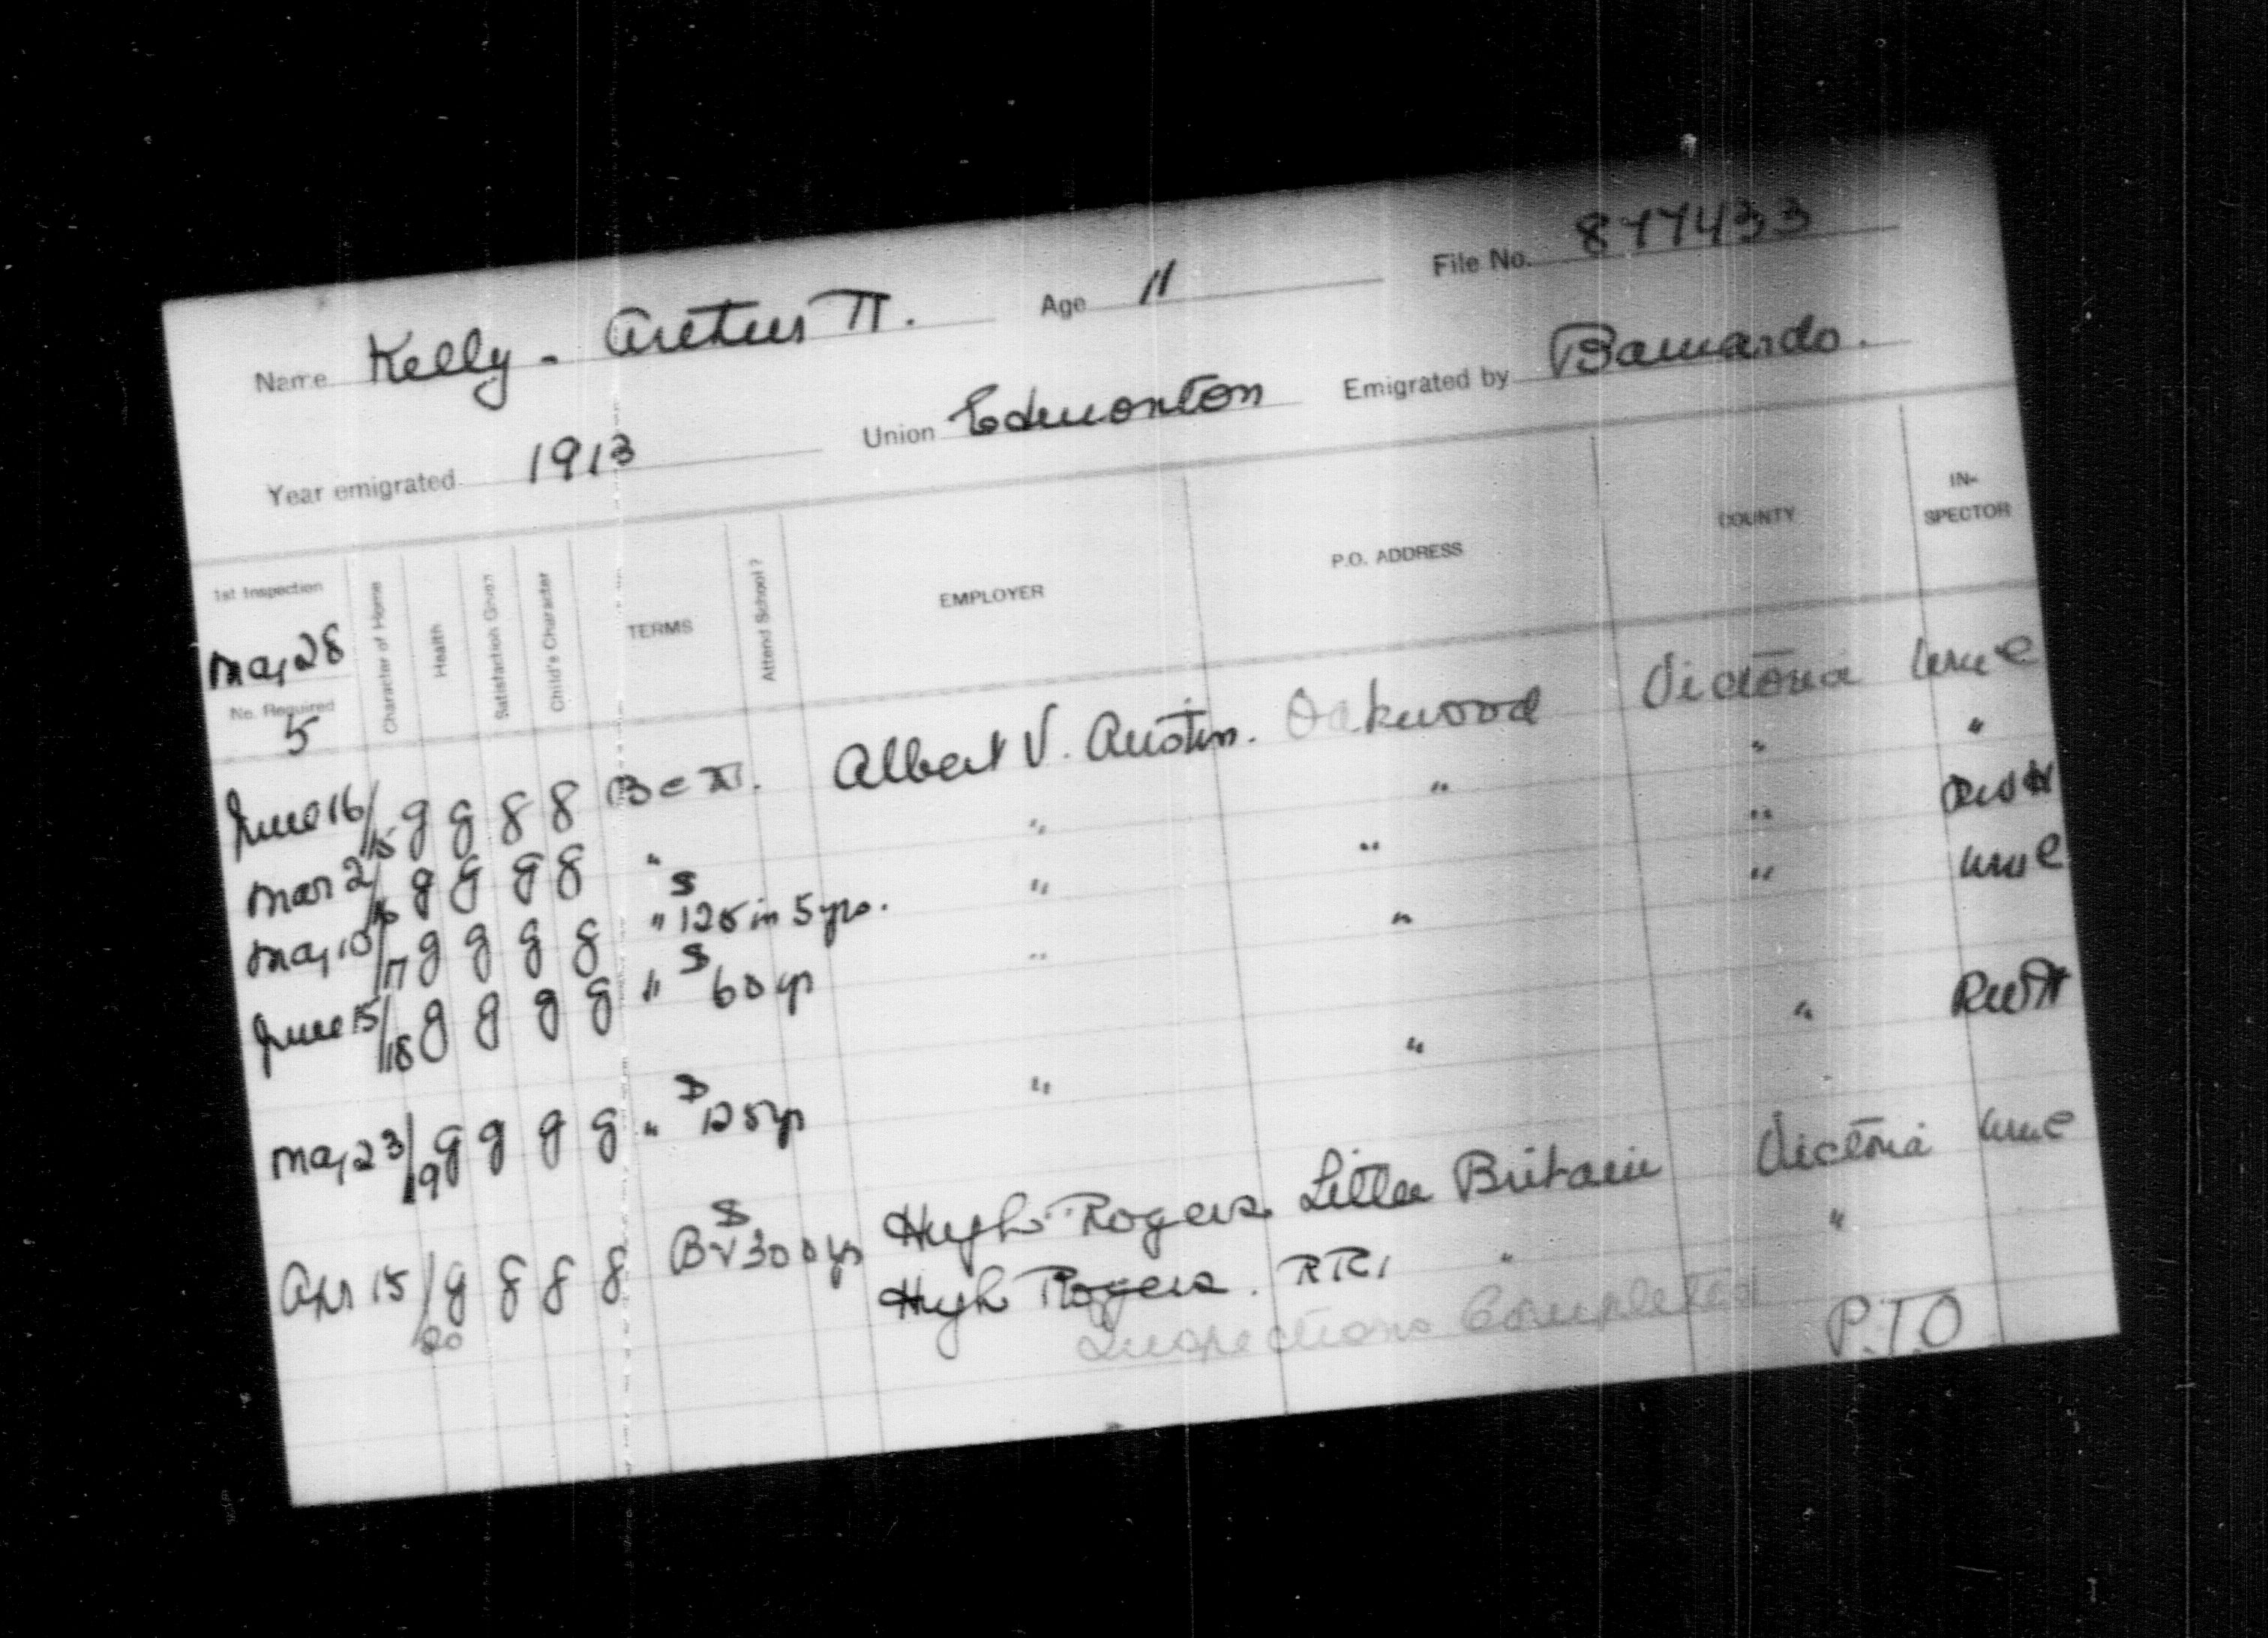 Name Kelly - Arthur H. Age 11 File No. 877433
Year emigrated 1913 Union Edmonton Emigrated by Barnardo.
1st Inspection May 28 No. Required 5 Character of Home Health Satisfaction Given Child's Character TERMS Attend School? EMPLOYER P.O. ADDRESS COUNTY IN-SPECTOR
June 16/15 g g g g B C Albert V. Austin. Oakwood Victoria
Mar 2/16 g g g g " " " " "
May 10/17 g g g g " $125 in 5 yrs. " " "
June 15/18 g g g g " $60 yr " " "
May 23/19 g g g g " $125 yr " " "
Apr 15/20 g g g g $300 yr Hugh Rogers. Little Britain Victoria
Hugh Rogers. RR1 " "
Inspections Completed
P.T.O